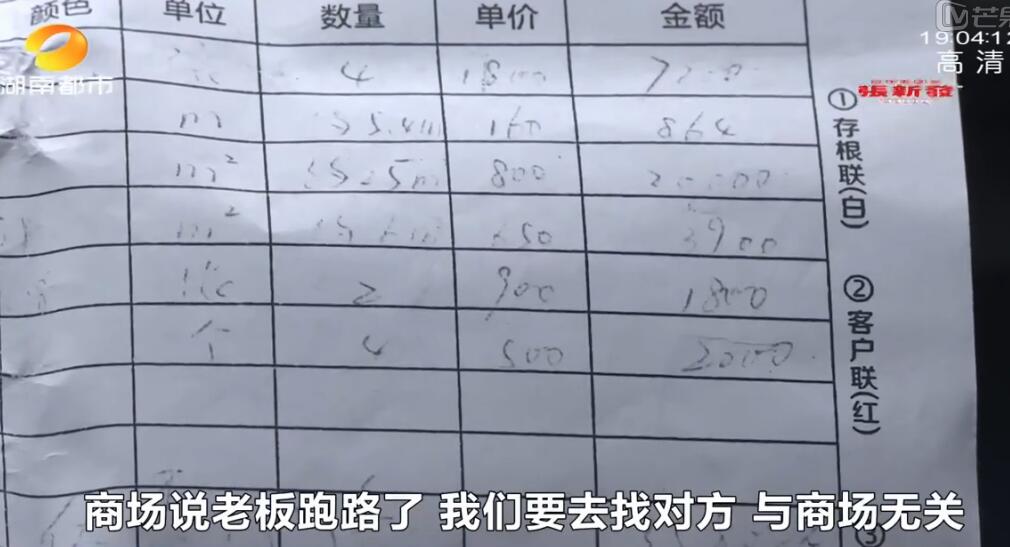 颜色 单位 数量 单价 金额
芒果
19:04:12
高清
湖南都市
張新發
4 1800 7200
m 5.4m 160 864
m² 25m 800 20000
m² 6m 650 3900
2 900 1800
个 4 500 2000
①存根联(白)
②客户联(红)
③
商场说老板跑路了 我们要去找对方 与商场无关